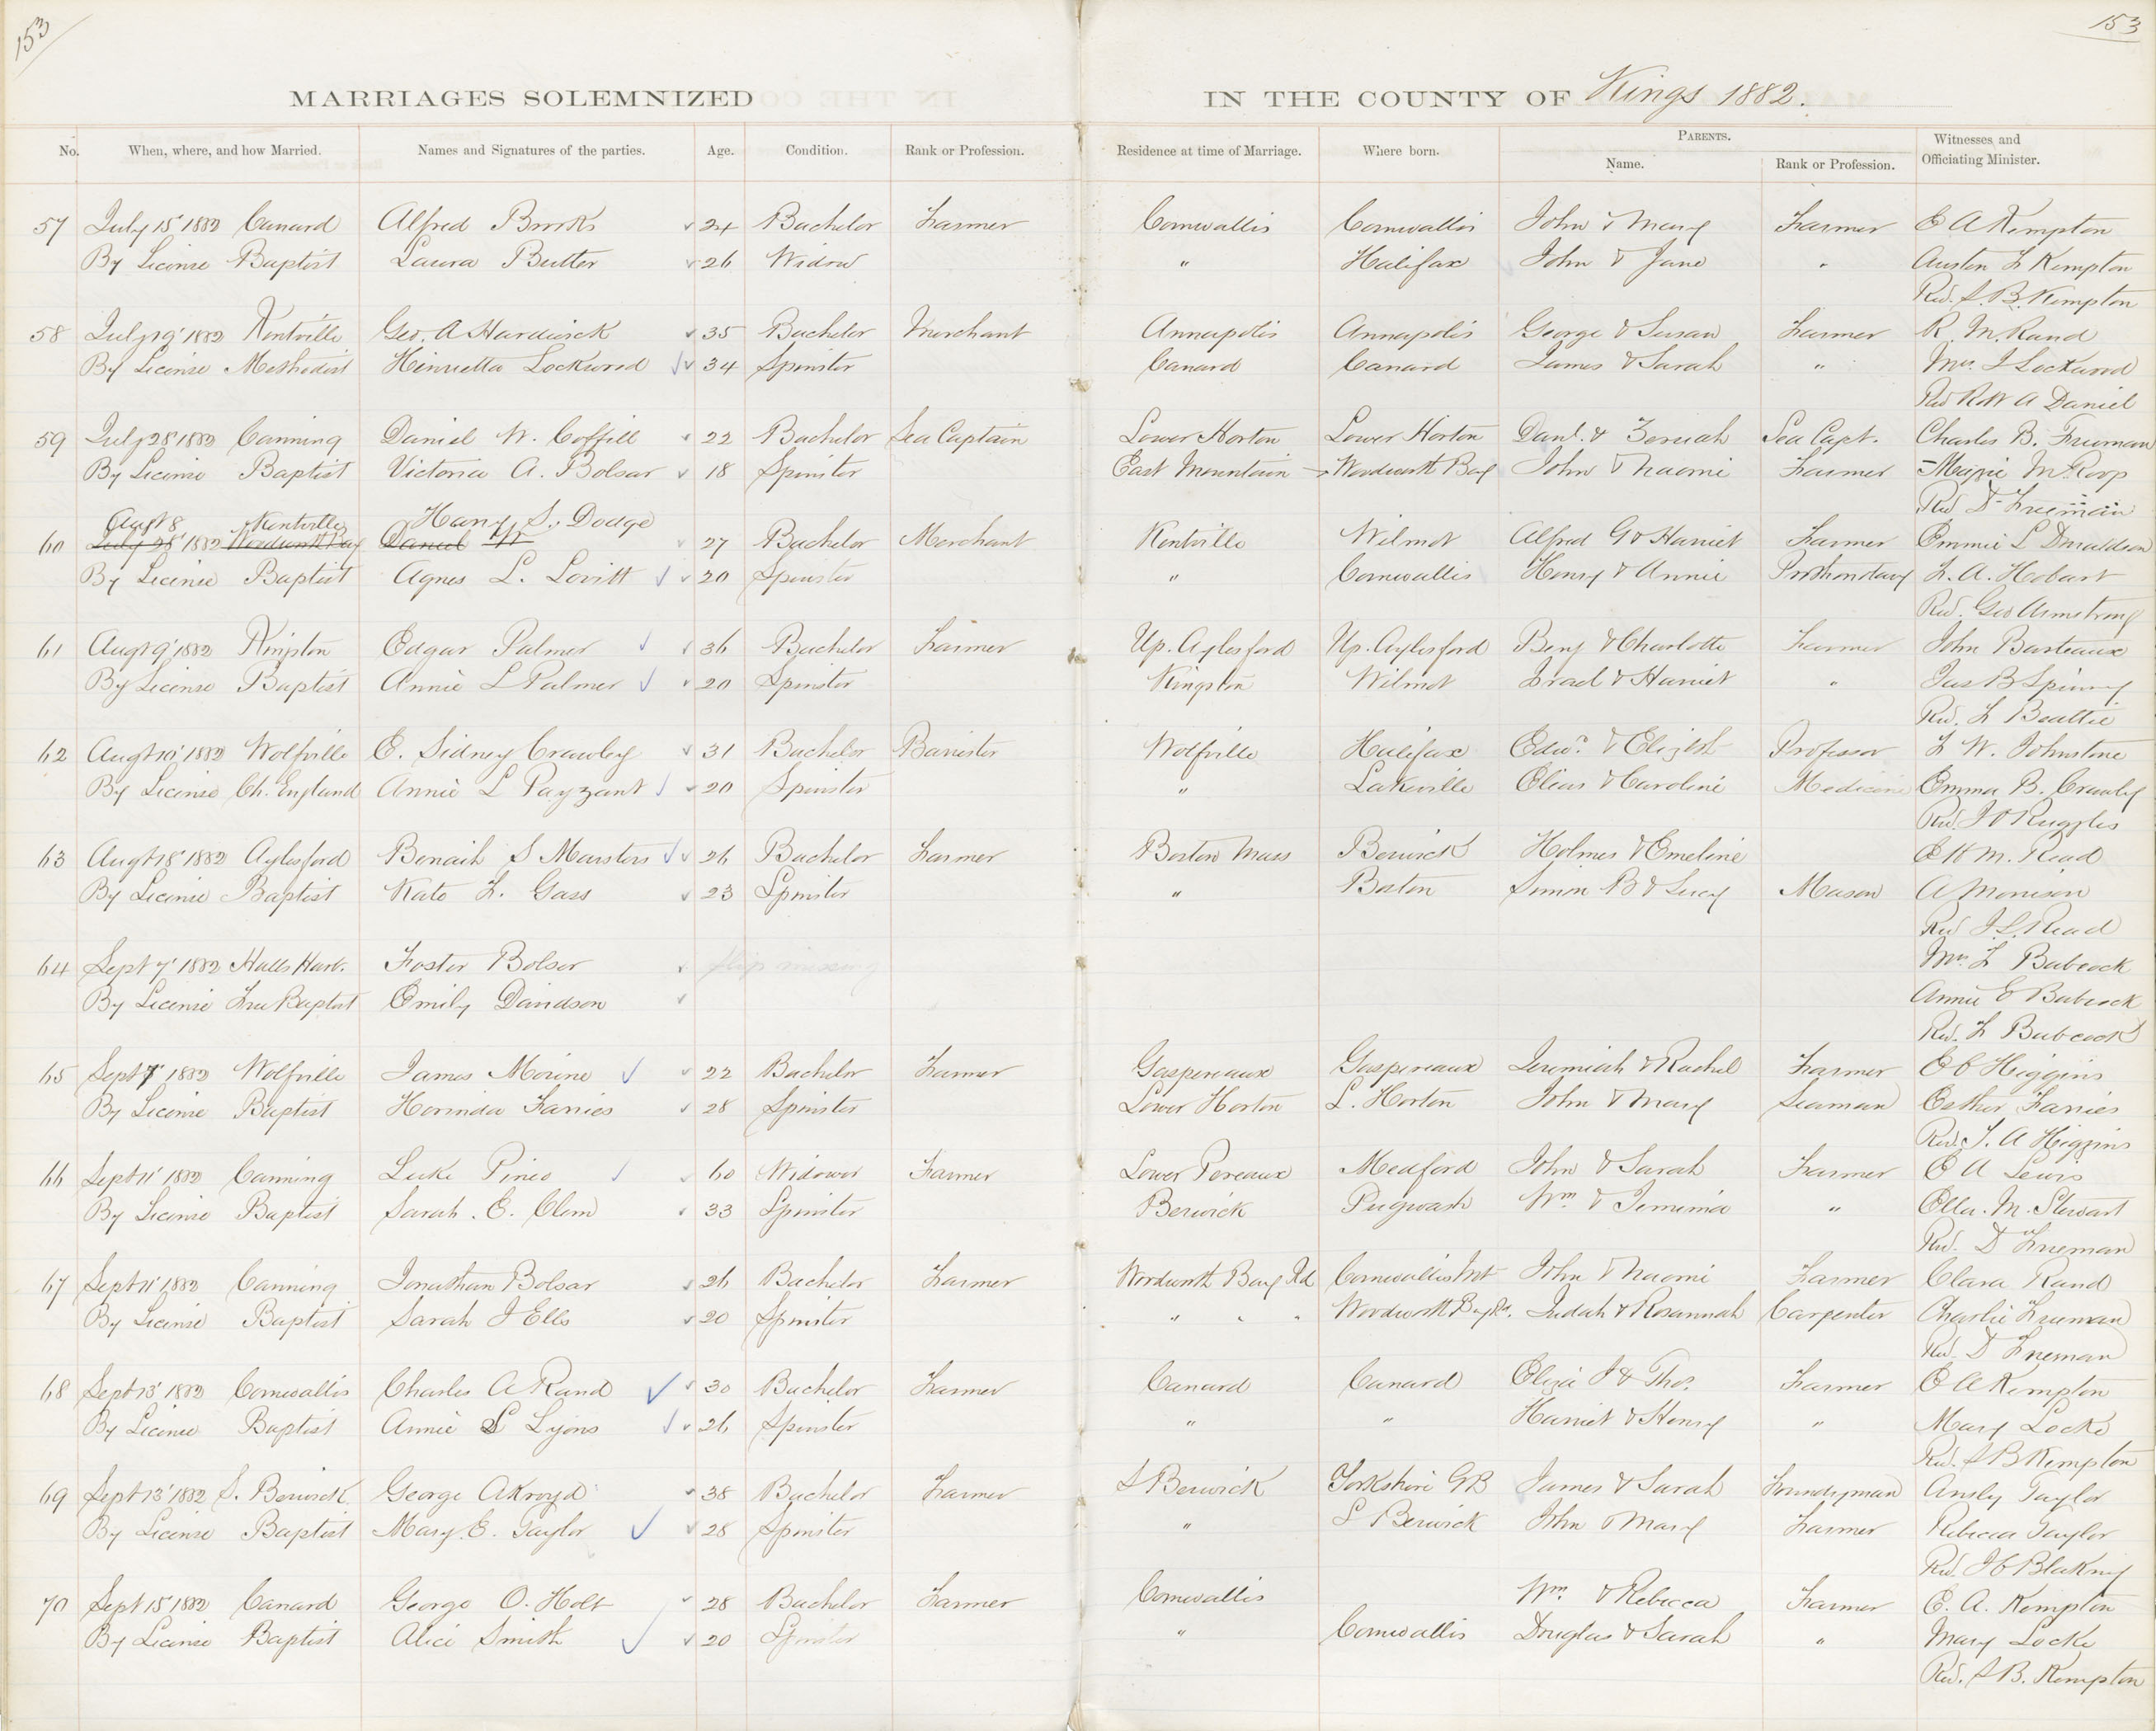 153
153
MARRIAGES SOLEMNIZED IN THE COUNTY OF Kings 1882.
No. When, where, and how Married. Names and Signatures of the parties. Age. Condition. Rank or Profession. Residence at time of Marriage. Where born. PARENTS. Name. Rank or Profession. Witnesses and Officiating Minister.
57 July 15 1882 Canard Alfred Brooks 24 Bachelor Farmer Cornwallis Cornwallis John & Mary Farmer E A Kempton
By License Baptist Laura Butler 26 Widow " Halifax John & Jane " Austen F Kempton
Rev. S. B. Kempton
58 July 19 1882 Kentville Geo. A Hardwick 35 Bachelor Merchant Annapolis Annapolis George & Susan Farmer R. M. Rand
By License Methodist Henrietta Lockwood 34 Spinster Canard Canard James & Sarah " Mrs. J Lockwood
Rev Robt A Daniel
59 July 28 1882 Canning Daniel W. Coffill 22 Bachelor Sea Captain Lower Horton Lower Horton Danl. & Zeruah Sea Capt. Charles B. Freeman
By License Baptist Victoria A. Bolsar 18 Spinster East Mountain Wordworth Bay John & Naomi Farmer Magie McRoop
Rev D Freeman
Augt 8 Kentville Harry S. Dodge
60 July 28 1882 Wordworth Bay Daniel W 27 Bachelor Merchant Kentville Wilmot Alfred G & Harriet Farmer Emmie L Donaldson
By License Baptist Agnes L. Lovitt 20 Spinster " Cornwallis Henry & Annie Prothonotary F. A. Hobart
Rev. Geo Armstrong
61 Augt 9 1882 Kingston Edgar Palmer 36 Bachelor Farmer Up. Aylesford Up. Aylesford Benj & Charlotte Farmer John Barteaux
By License Baptist Annie L Palmer 20 Spinster Kingston Wilmot Israel & Harriet " Jas B Spinny
Rev. F Beattie
62 Augt 10 1882 Wolfville E. Sidney Crawley 31 Bachelor Barrister Wolfville Halifax Edwd. & Elizbt Professor L W. Johnstone
By License Ch. England Annie L Payzant 20 Spinster " Lakeville Elias & Caroline Medicine Emma B. Crawley
Rev. J O Ruggles
63 Augt 18 1882 Aylesford Benaih S Marsters 26 Bachelor Farmer Boston Mass Berwick Holmes & Emeline E H M. Read
By License Baptist Kate F. Gass 23 Spinster " Boston Simon B & Lucy Mason A Morrison
Rev J. L. Read
64 Sept 7 1882 Halls Harb. Foster Bolser slip missing Mrs. F Babcock
By License Free Baptist Emily Davidson Annie E Babcock
Rev. F Babcock
65 Sept 7 1882 Wolfville James Morine 22 Bachelor Farmer Gaspereaux Gaspereaux Jeremiah & Rachel Farmer E C Higgins
By License Baptist Herinda Farries 28 Spinster Lower Horton L. Horton John & Mary Seaman Esther Farries
Rev. T. A Higgins
66 Sept 11 1882 Canning Luke Pineo 60 Widower Farmer Lower Pereaux Medford John & Sarah Farmer E A Lewis
By License Baptist Sarah. E. Clem 33 Spinster Berwick Pugwash Wm & Jemima " Ella. M. Stewart
Rev. D Freeman
67 Sept 11 1882 Canning Jonathan Bolsar 26 Bachelor Farmer Wordworth Bay Rd Cornwallis Mt John & Naomi Farmer Clara Rand
By License Baptist Sarah J Ells 20 Spinster " " " Wordworth Bay Rd. Judah & Rosannah Carpenter Charlie Freeman
Rev. D Freeman
68 Sept 13 1882 Cornwallis Charles A Rand 30 Bachelor Farmer Canard Canard Eliza J & Thos. Farmer E A Kempton
By License Baptist Annie S Lyons 26 Spinster " " Harriet & Henry " Mary Locke
Rev. S B Kempton
69 Sept 13 1882 S. Berwick George Akroyd 38 Bachelor Farmer S Berwick Yorkshire GB James & Sarah Foundryman Ansly Taylor
By License Baptist Mary. E. Taylor 28 Spinster " S Berwick John & Mary Farmer Rebecca Taylor
Rev. J C Blakney
70 Sept 15 1882 Canard George O. Holt 28 Bachelor Farmer Cornwallis Wm. & Rebecca Farmer E. A. Kempton
By License Baptist Alice Smith 20 Spinster " Cornwallis Douglas & Sarah " Mary Locke
Rev. S B. Kempton